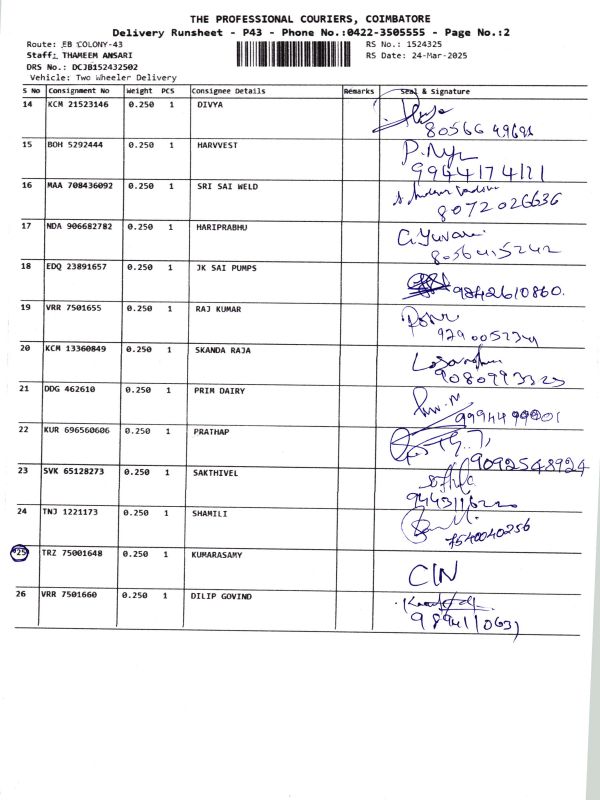 THE PROFESSIONAL COURIERS, COIMBATORE
Delivery Runsheet - P43 - Phone No.:0422-3505555 - Page No.:2
Route: EB COLONY-43 RS No.: 1524325
Staff: THAMEEM ANSARI RS Date: 24-Mar-2025
DRS No.: DCJB152432502
Vehicle: Two Wheeler Delivery
S No Consignment No Weight PCS Consignee Details Remarks Seal & Signature
14 KCM 21523146 0.250 1 DIVYA
15 BOH 5292444 0.250 1 HARVVEST
9944174121
16 MAA 708436092 0.250 1 SRI SAI WELD
8072026636
17 NDA 906682782 0.250 1 HARIPRABHU
G. Yuvarani
8056415242
18 EDQ 23891657 0.250 1 JK SAI PUMPS
9842610860.
19 VRR 7501655 0.250 1 RAJ KUMAR
20 KCM 13360849 0.250 1 SKANDA RAJA
21 DDG 462610 0.250 1 PRIM DAIRY
22 KUR 696560606 0.250 1 PRATHAP
9092548924
23 SVK 65128273 0.250 1 SAKTHIVEL
24 TNJ 1221173 0.250 1 SHAMILI
7540040256
25 TRZ 75001648 0.250 1 KUMARASAMY
C/N
26 VRR 7501660 0.250 1 DILIP GOVIND